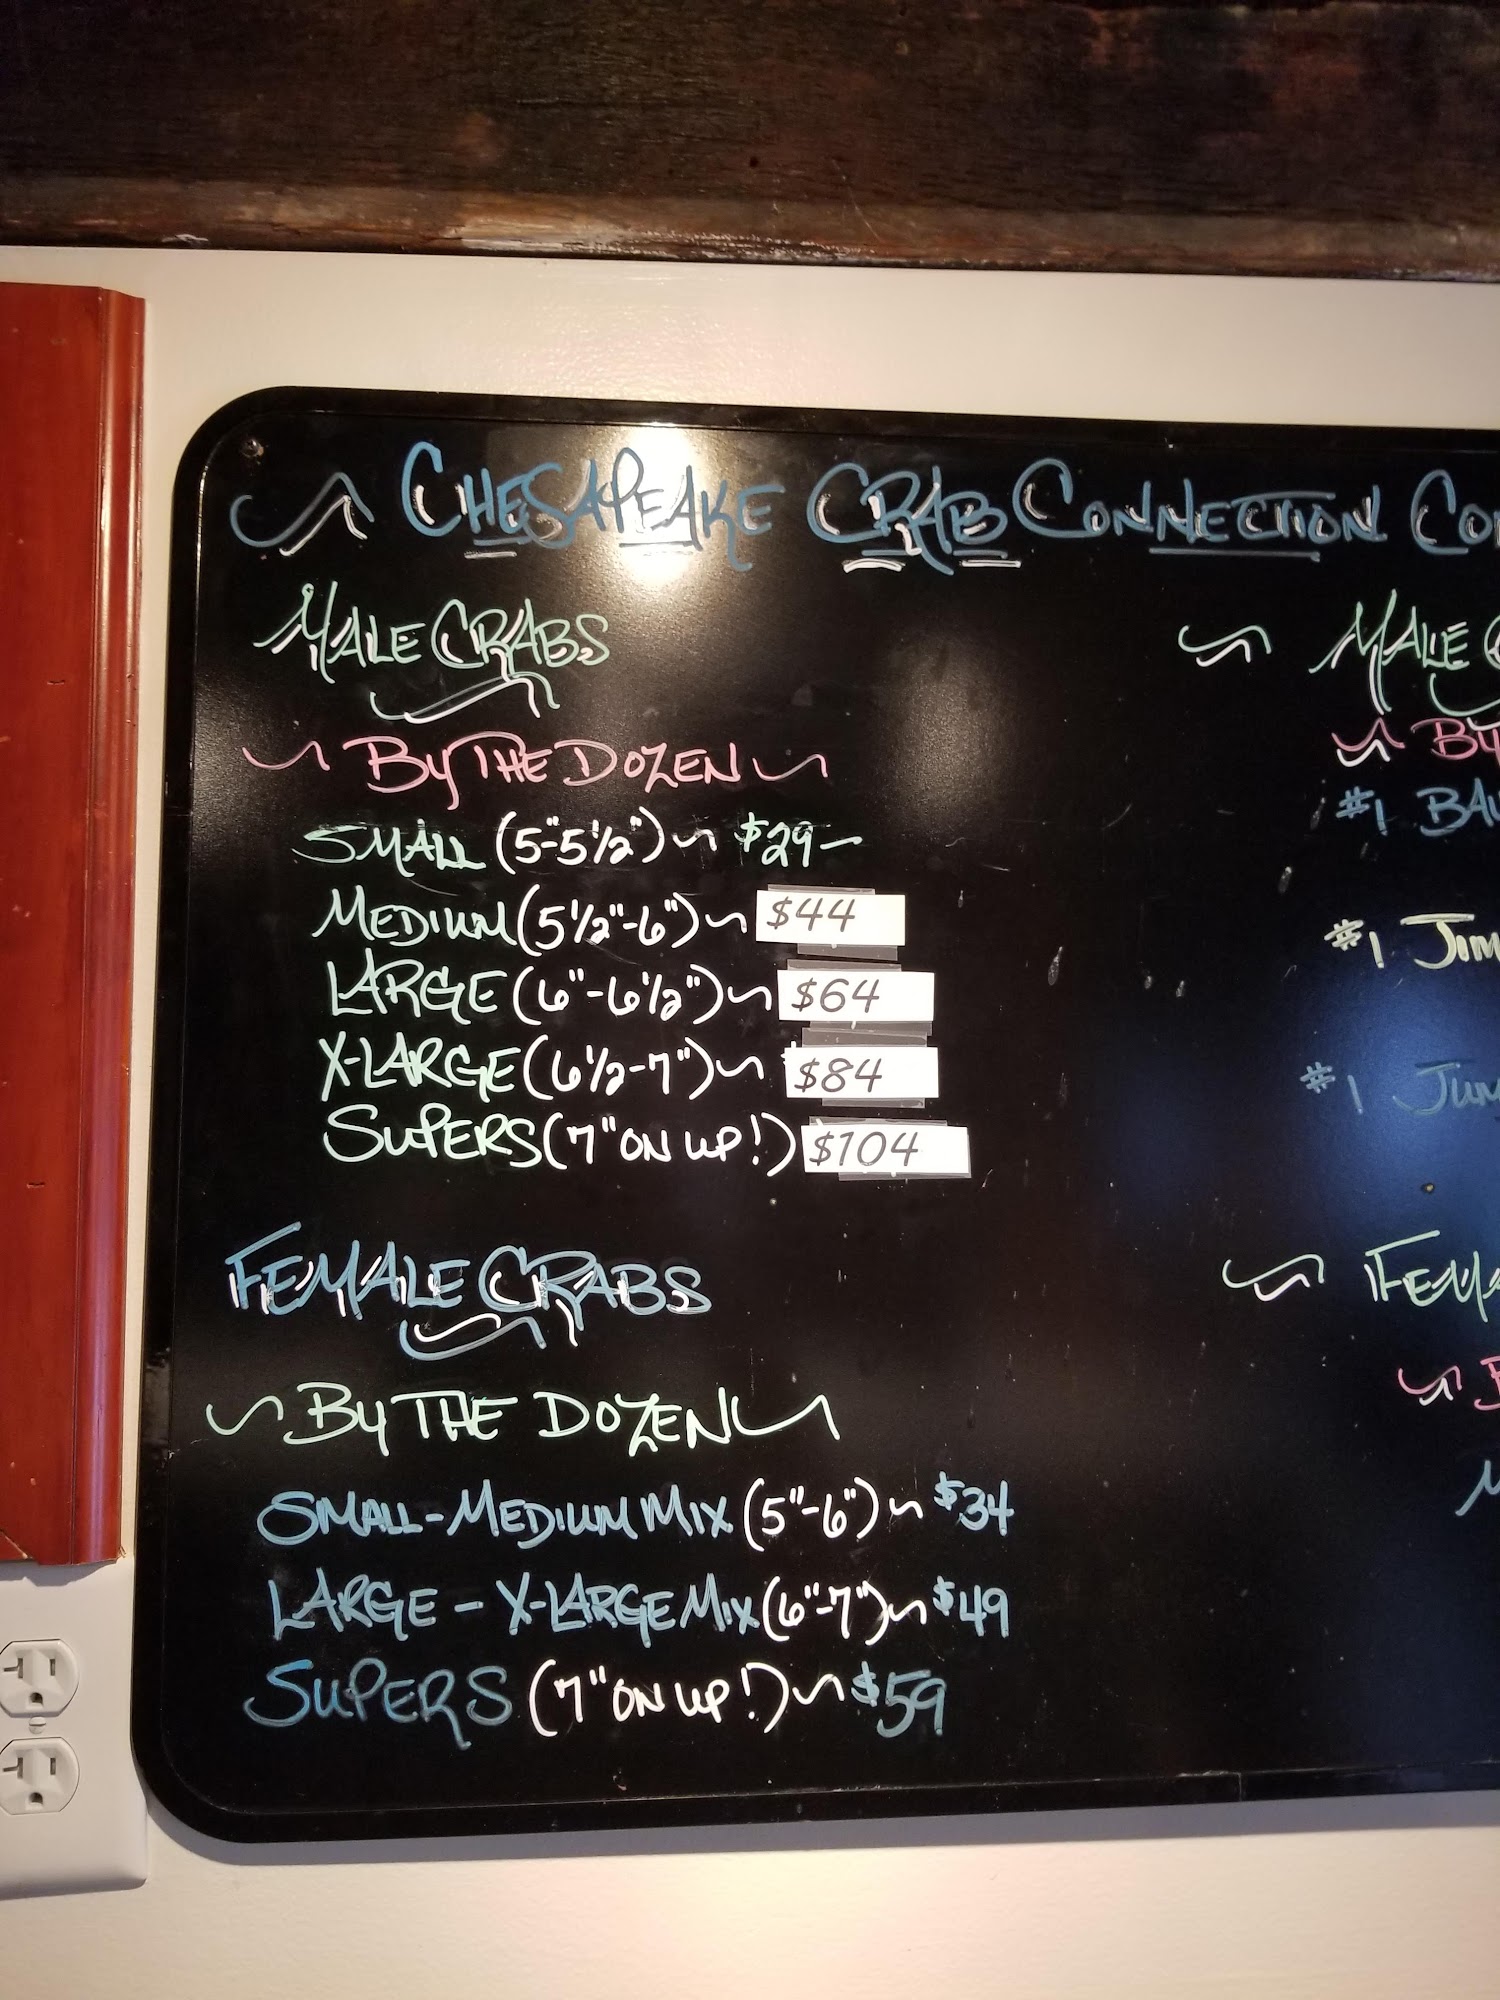 CHESAPEAKE CRAB CONNECTION
MALE CRABS
BY THE DOZEN
SMALL (5"-5 1/2") ~ $29-
MEDIUM (5 1/2"-6") ~ $44
LARGE (6"-6 1/2") ~ $64
X-LARGE (6 1/2-7") ~ $84
SUPERS (7" ON UP!) $104
FEMALE CRABS
~ BY THE DOZEN ~
SMALL-MEDIUM MIX (5"-6") ~ $34
LARGE - X-LARGE MIX (6"-7") ~ $49
SUPERS (7" ON UP!) ~ $59
MALE
#1
#1
#1